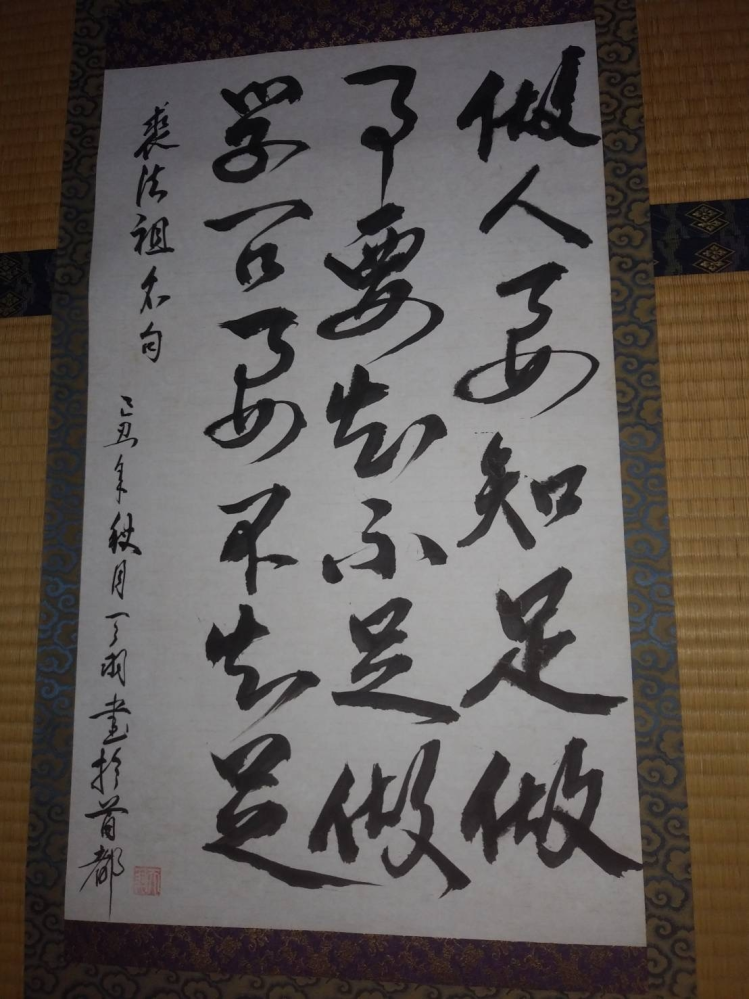 做人要知足做
事要知不足做
学问要不知足
裘法祖名句
己丑年秋月 書於首都